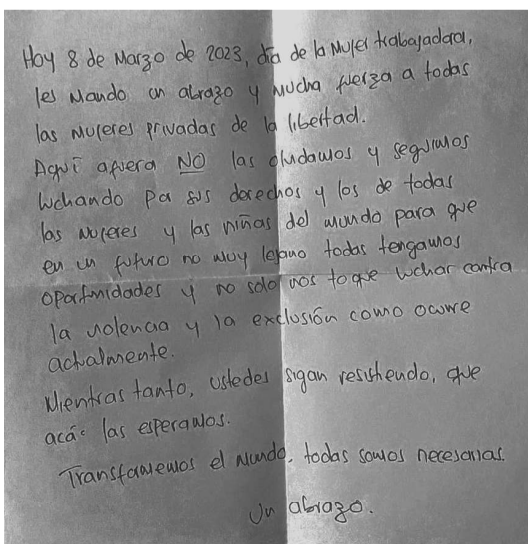 Hoy 8 de Marzo de 2023, día de la Mujer trabajadora,
les Mando un abrazo y mucha fuerza a todas
las mujeres privadas de la libertad.
Aquí afuera NO las olvidamos y seguimos
luchando por sus derechos y los de todas
las mujeres y las niñas del mundo para que
en un futuro no muy lejano todas tengamos
oportunidades y no solo nos toque luchar contra
la violencia y la exclusión como ocurre
actualmente.
Mientras tanto, ustedes sigan resistiendo, que
acá las esperamos.
Transformemos el mundo, todas somos necesarias.
Un abrazo.